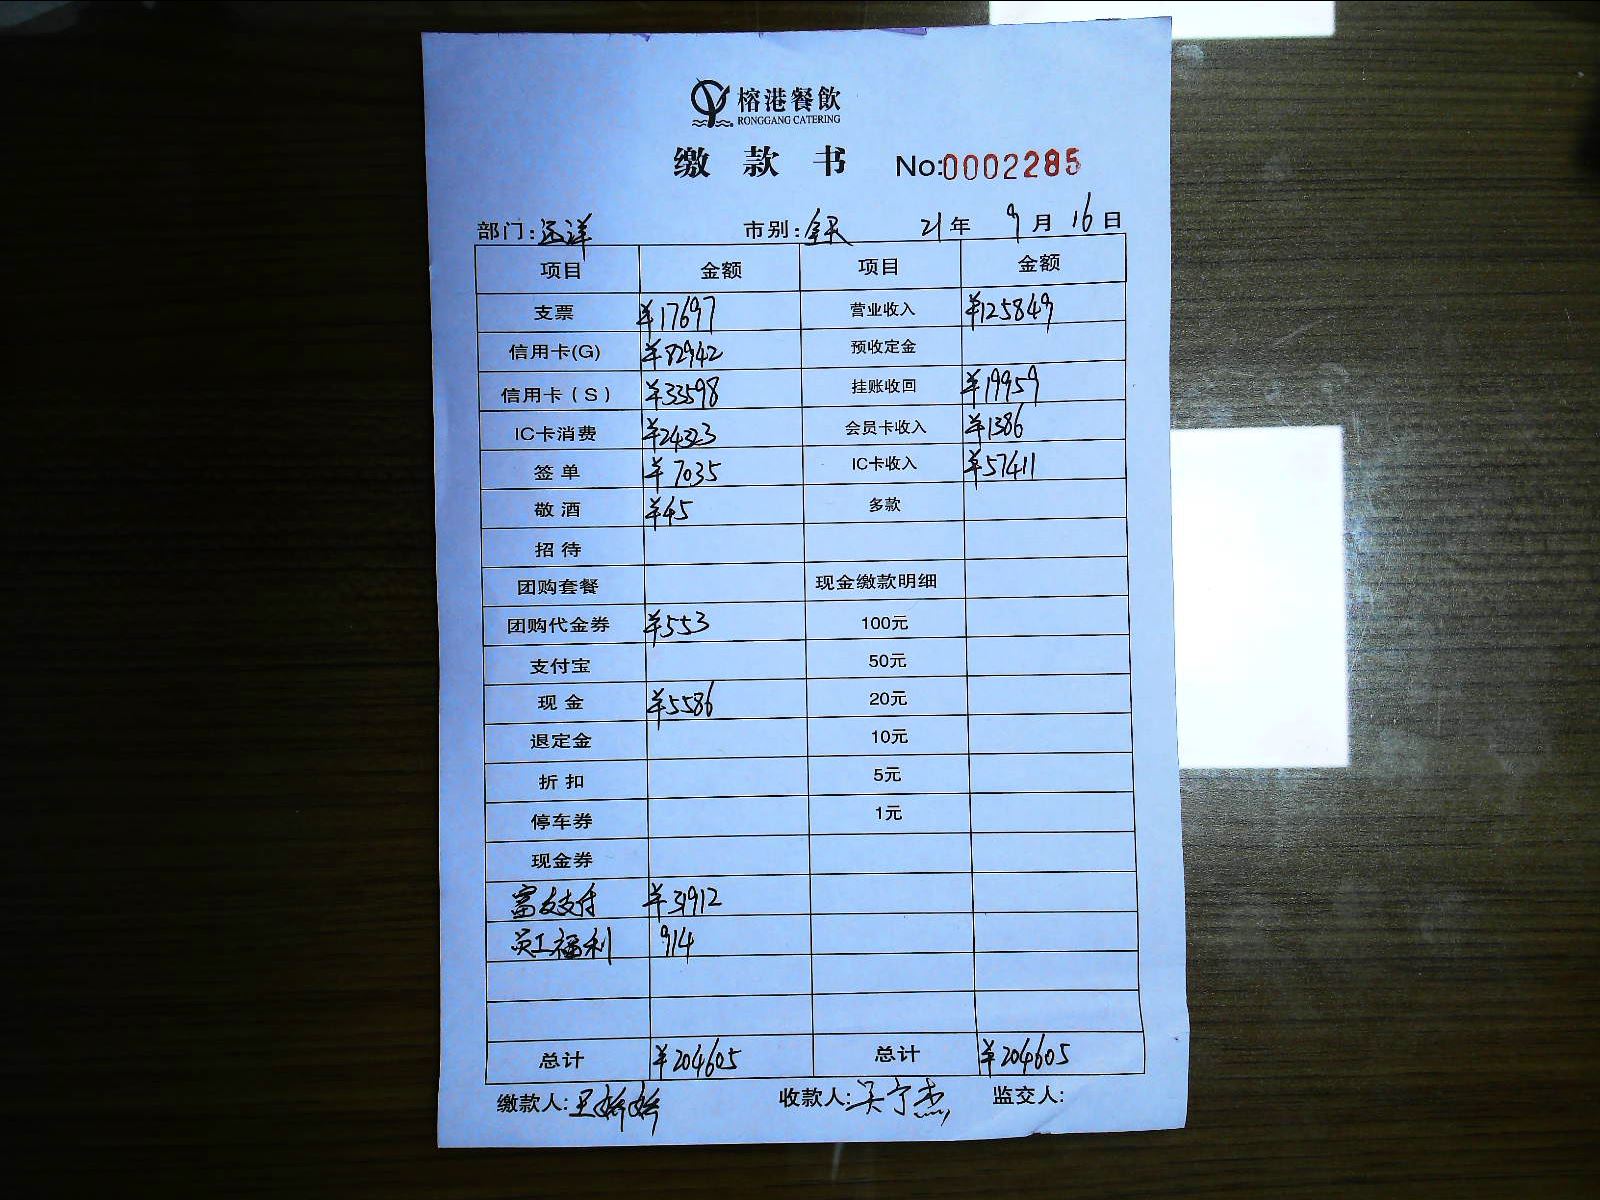 榕港餐飲
RONGGANG CATERING
缴款书 No:0002285
部门:远洋 市别:全天 21年 9月 16日
项目 金额 项目 金额
支票 ¥17697 营业收入 ¥125849
信用卡(G) ¥82942 预收定金
信用卡(S) ¥33598 挂账收回 ¥19959
IC卡消费 ¥24323 会员卡收入 ¥1386
签单 ¥7035 IC卡收入 ¥57411
敬酒 ¥45 多款
招待
团购套餐 现金缴款明细
团购代金券 ¥553 100元
支付宝 50元
现金 ¥5586 20元
退定金 10元
折扣 5元
停车券 1元
现金券
富友支付 ¥31912
员工福利 914
总计 ¥204605 总计 ¥204605
缴款人: 收款人:吴宁杰 监交人: